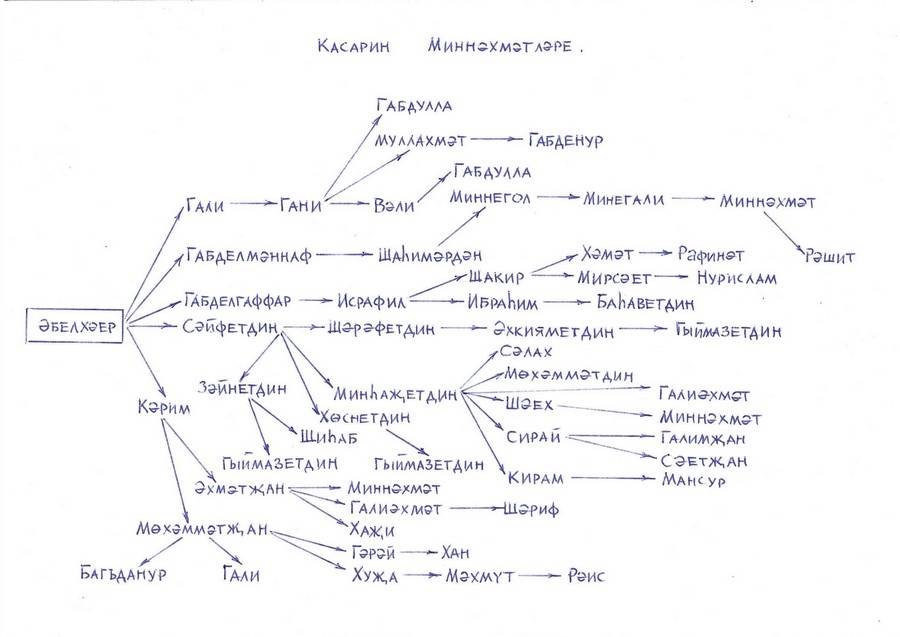 Касарин Миннәхмәтләре.
Габдулла
Муллахмәт Габденур
Габдулла
Гали Гани Вәли Миннегол Минегали Миннәхмәт
Габделмәннаф Шаһимәрдән Хәмәт Рафинәт Рәшит
Шакир Мирсәет Нурислам
Габделгаффар Исрафил Ибраһим Баһаветдин
Әбелхәер Сәйфетдин Шәрәфетдин Әхкияметдин Гыймазетдин
Сәлах
Мөхәммәтдин
Зәйнетдин Минһаҗетдин Галиәхмәт
Кәрим Хөснетдин Шәех Миннәхмәт
Шиһаб Сирай Галимҗан
Гыймазетдин Гыймазетдин Сәетҗан
Әхмәтҗан Миннәхмәт Кирам Мансур
Галиәхмәт Шәриф
Мөхәммәтҗан Хаҗи
Гәрәй Хан
Багъданур Гали Хуҗа Мәхмүт Рәис